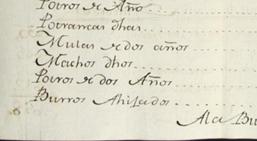 Potros de Año
Potrancas dhas
Mulas de dos años
Machos dhos
Potros de dos Años
Burros Ahijados
Ala Bu